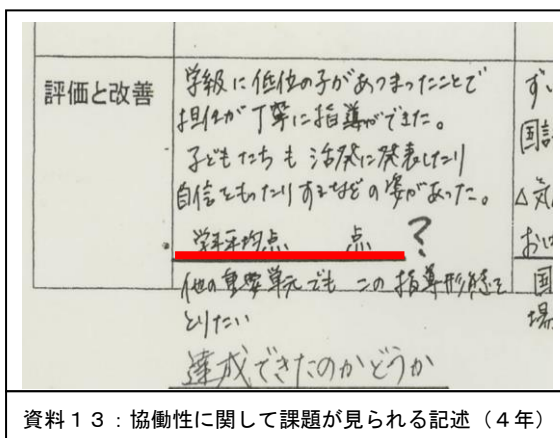 評価と改善
学級に低位の子があつまったことで
担任が丁寧に指導ができた。
子どもたちも活発に発表したり
自信をもったりするなどの姿があった。
学年平均点 点 ?
他の重要単元でもこの指導形態を
とりたい
達成できたのかどうか
ず
国語
△気
おに
国
場
資料13:協働性に関して課題が見られる記述(4年)